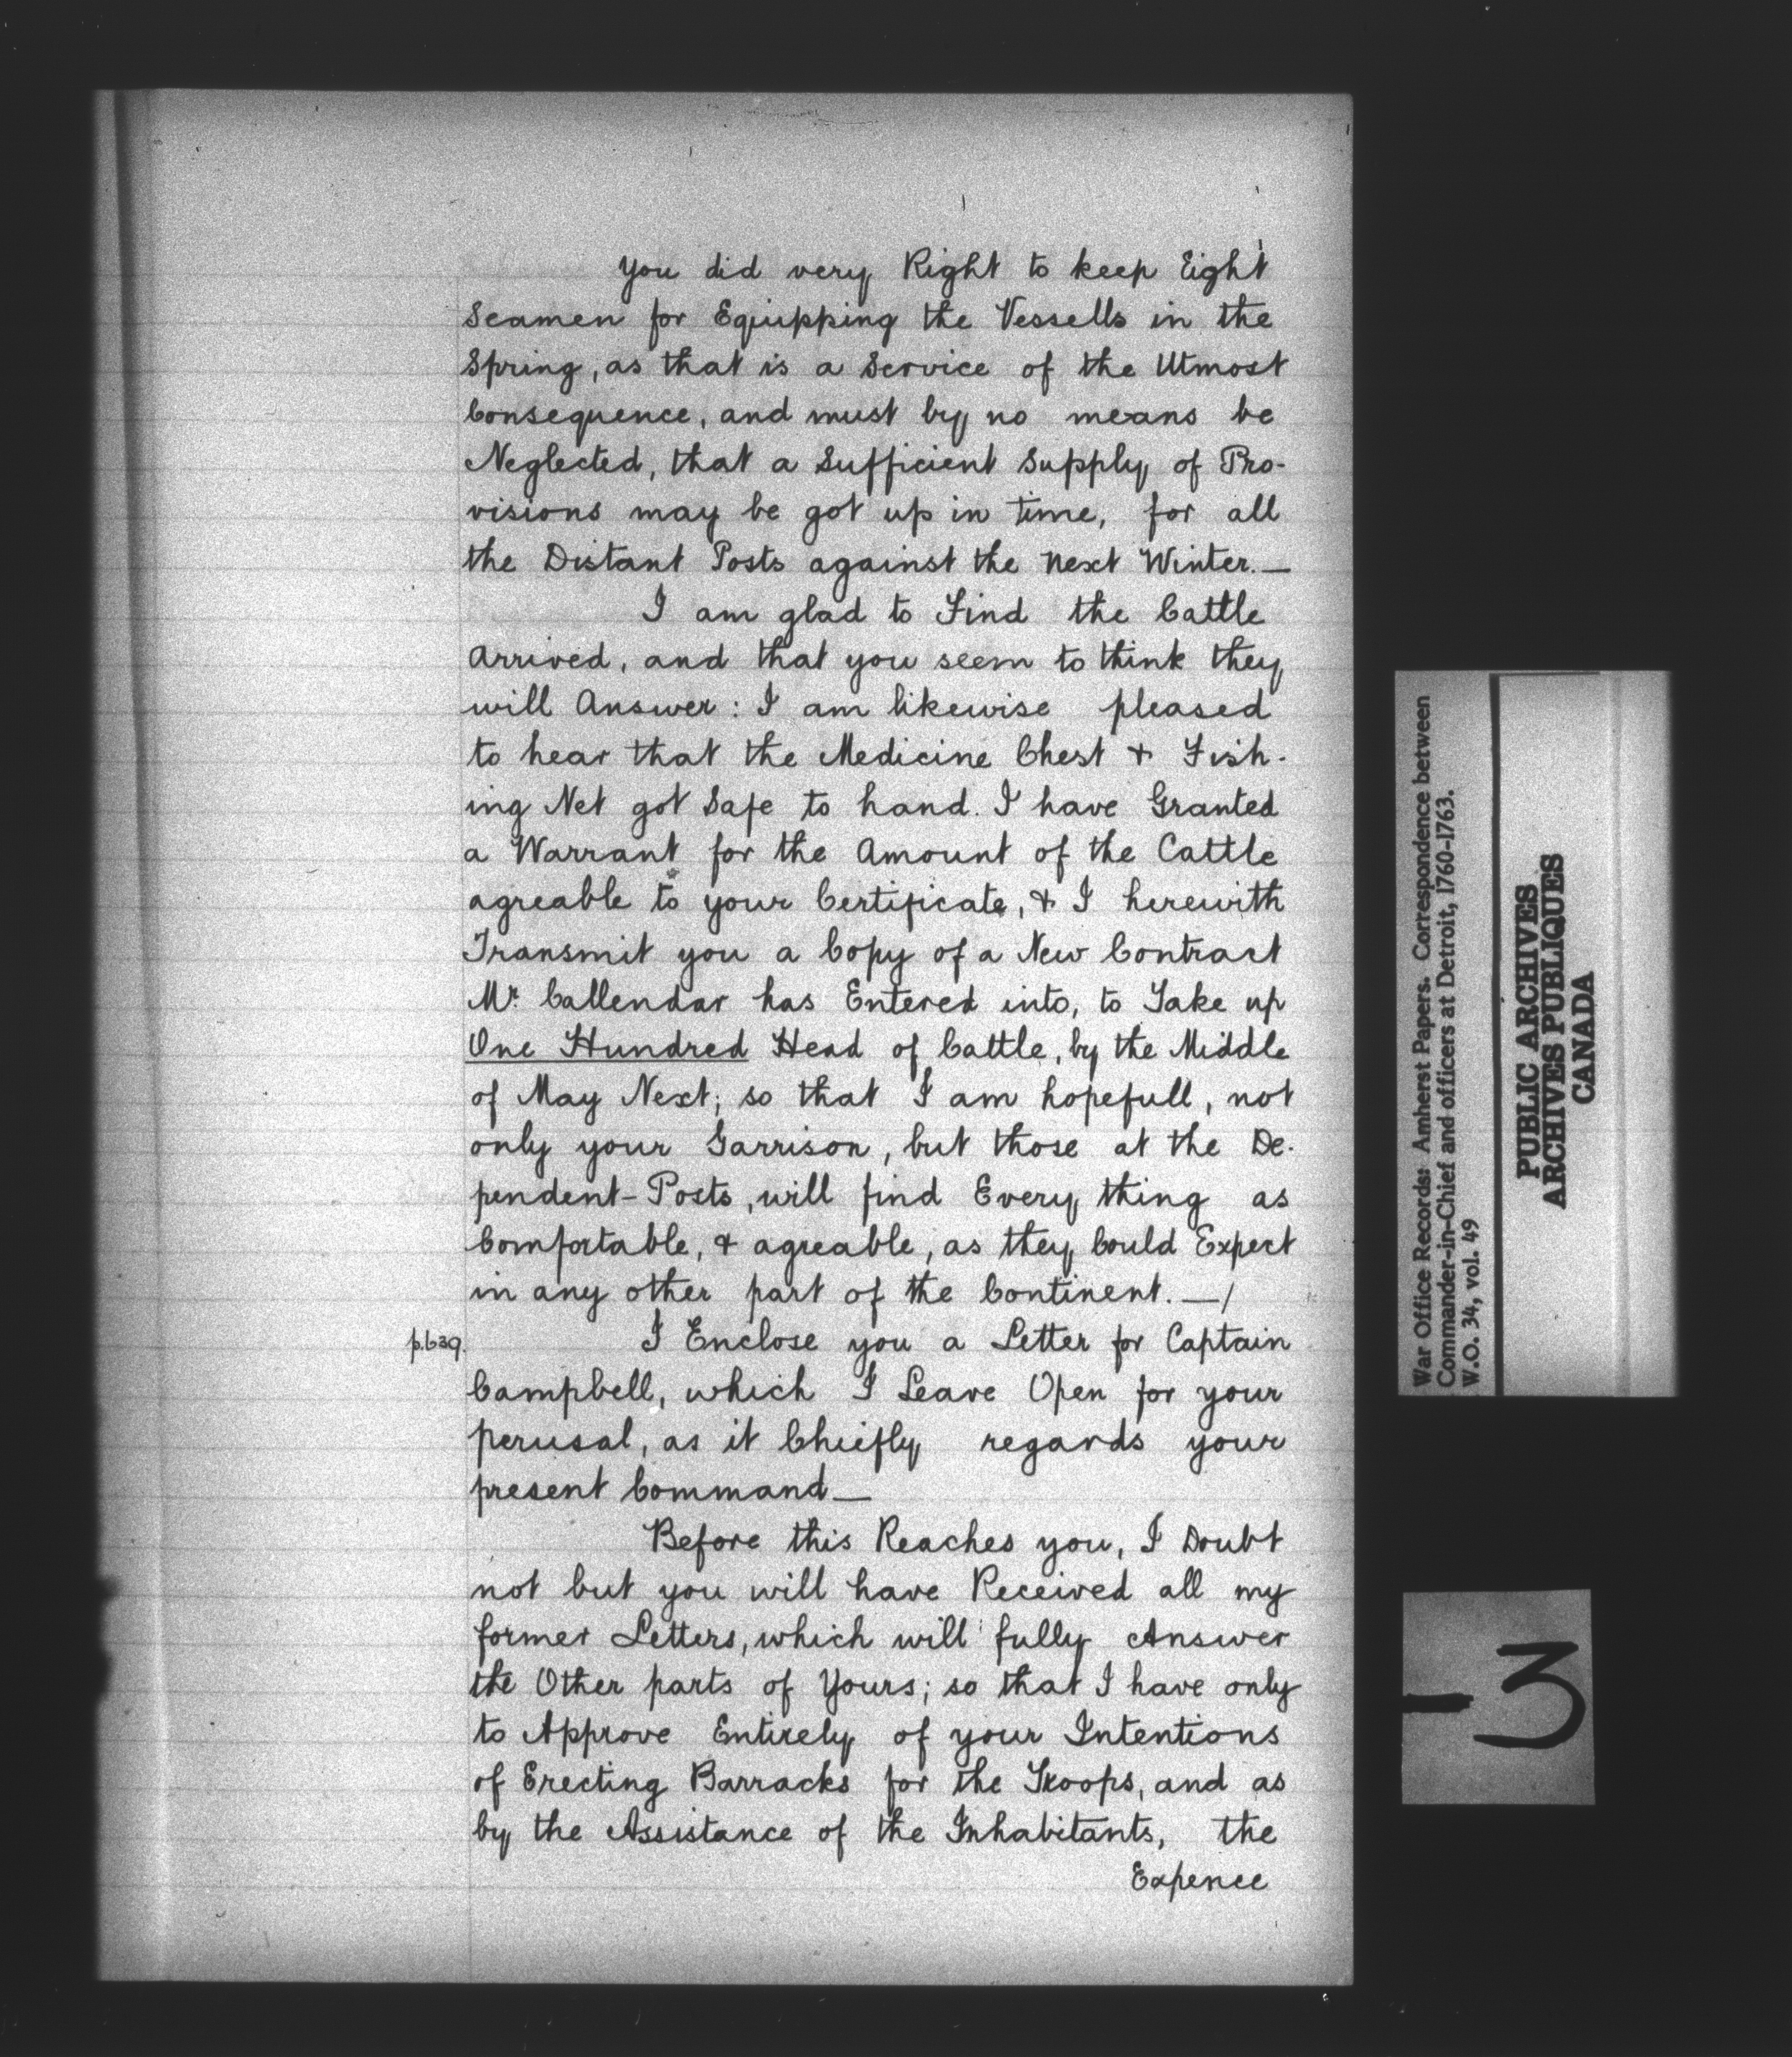 You did very Right to keep Eight
Seamen for Equipping the Vessells in the
Spring, as that is a Service of the Utmost
Consequence, and must by no means be
Neglected, that a Sufficient Supply of Pro-
visions may be got up in time, for all
the Distant Posts against the next Winter.—
I am glad to Find the Cattle
Arrived, and that you seem to think they
will Answer: I am likewise pleased
to hear that the Medicine Chest & Fish-
ing Net got Safe to hand. I have Granted
a Warrant for the Amount of the Cattle
agreable to your Certificate, & I herewith
Transmit you a Copy of a New Contract
Mr. Callendar has Entered into, to Take up
One Hundred Head of Cattle, by the Middle
of May Next; so that I am hopefull, not
only your Garrison, but those at the De-
pendent-Posts, will find Every thing as
Comfortable, & agreable, as they Could Expect
in any other part of the Continent.—/
I Enclose you a Letter for Captain
Campbell, which I Leave Open for your
perusal, as it Chiefly regards your
present Command—
Before this Reaches you, I Doubt
not but you will have Received all my
former Letters, which will fully Answer
the Other parts of Yours; so that I have only
to Approve Entirely of your Intentions
of Erecting Barracks for the Troops, and as
by the Assistance of the Inhabitants, the
Expence
War Office Records: Amherst Papers. Correspondence between
Commander-in-Chief and officers at Detroit, 1760-1763.
W.O. 34, vol. 49
PUBLIC ARCHIVES
ARCHIVES PUBLIQUES
CANADA
-3